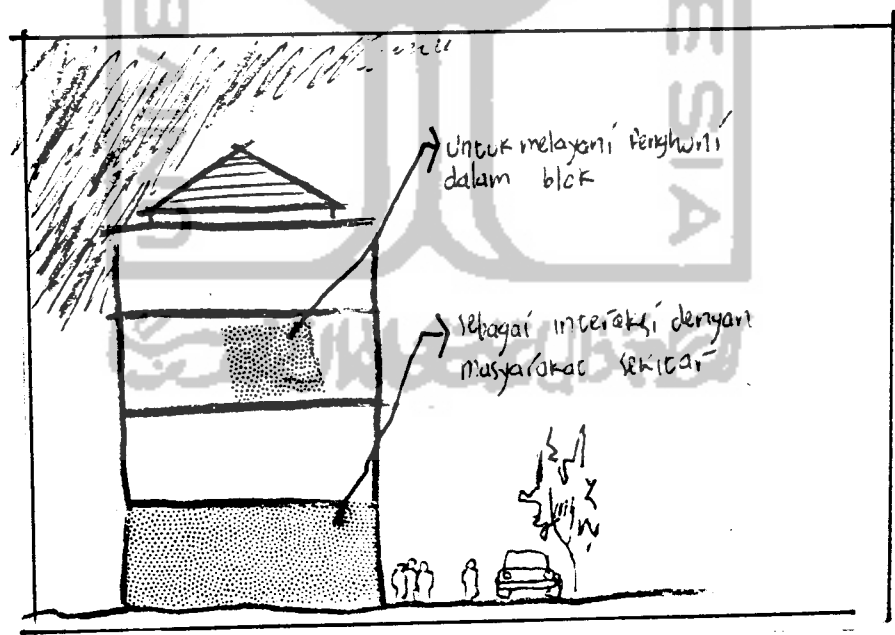 Untuk melayani Penghuni
dalam blok
sebagai interaksi dengan
masyarakat sekitar
ESIA